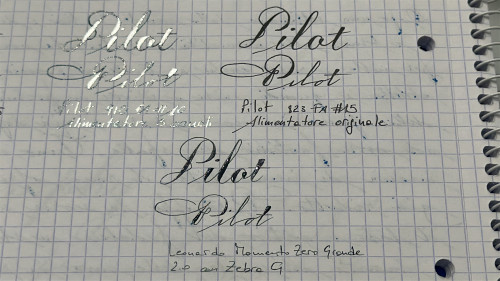 Pilot
Pilot
alimentatore 3 canali
Pilot
Pilot
Pilot 823 FA #15
Alimentatore originale
Pilot
Pilot
Leonardo Momento Zero Grande
2.0 con Zebra G